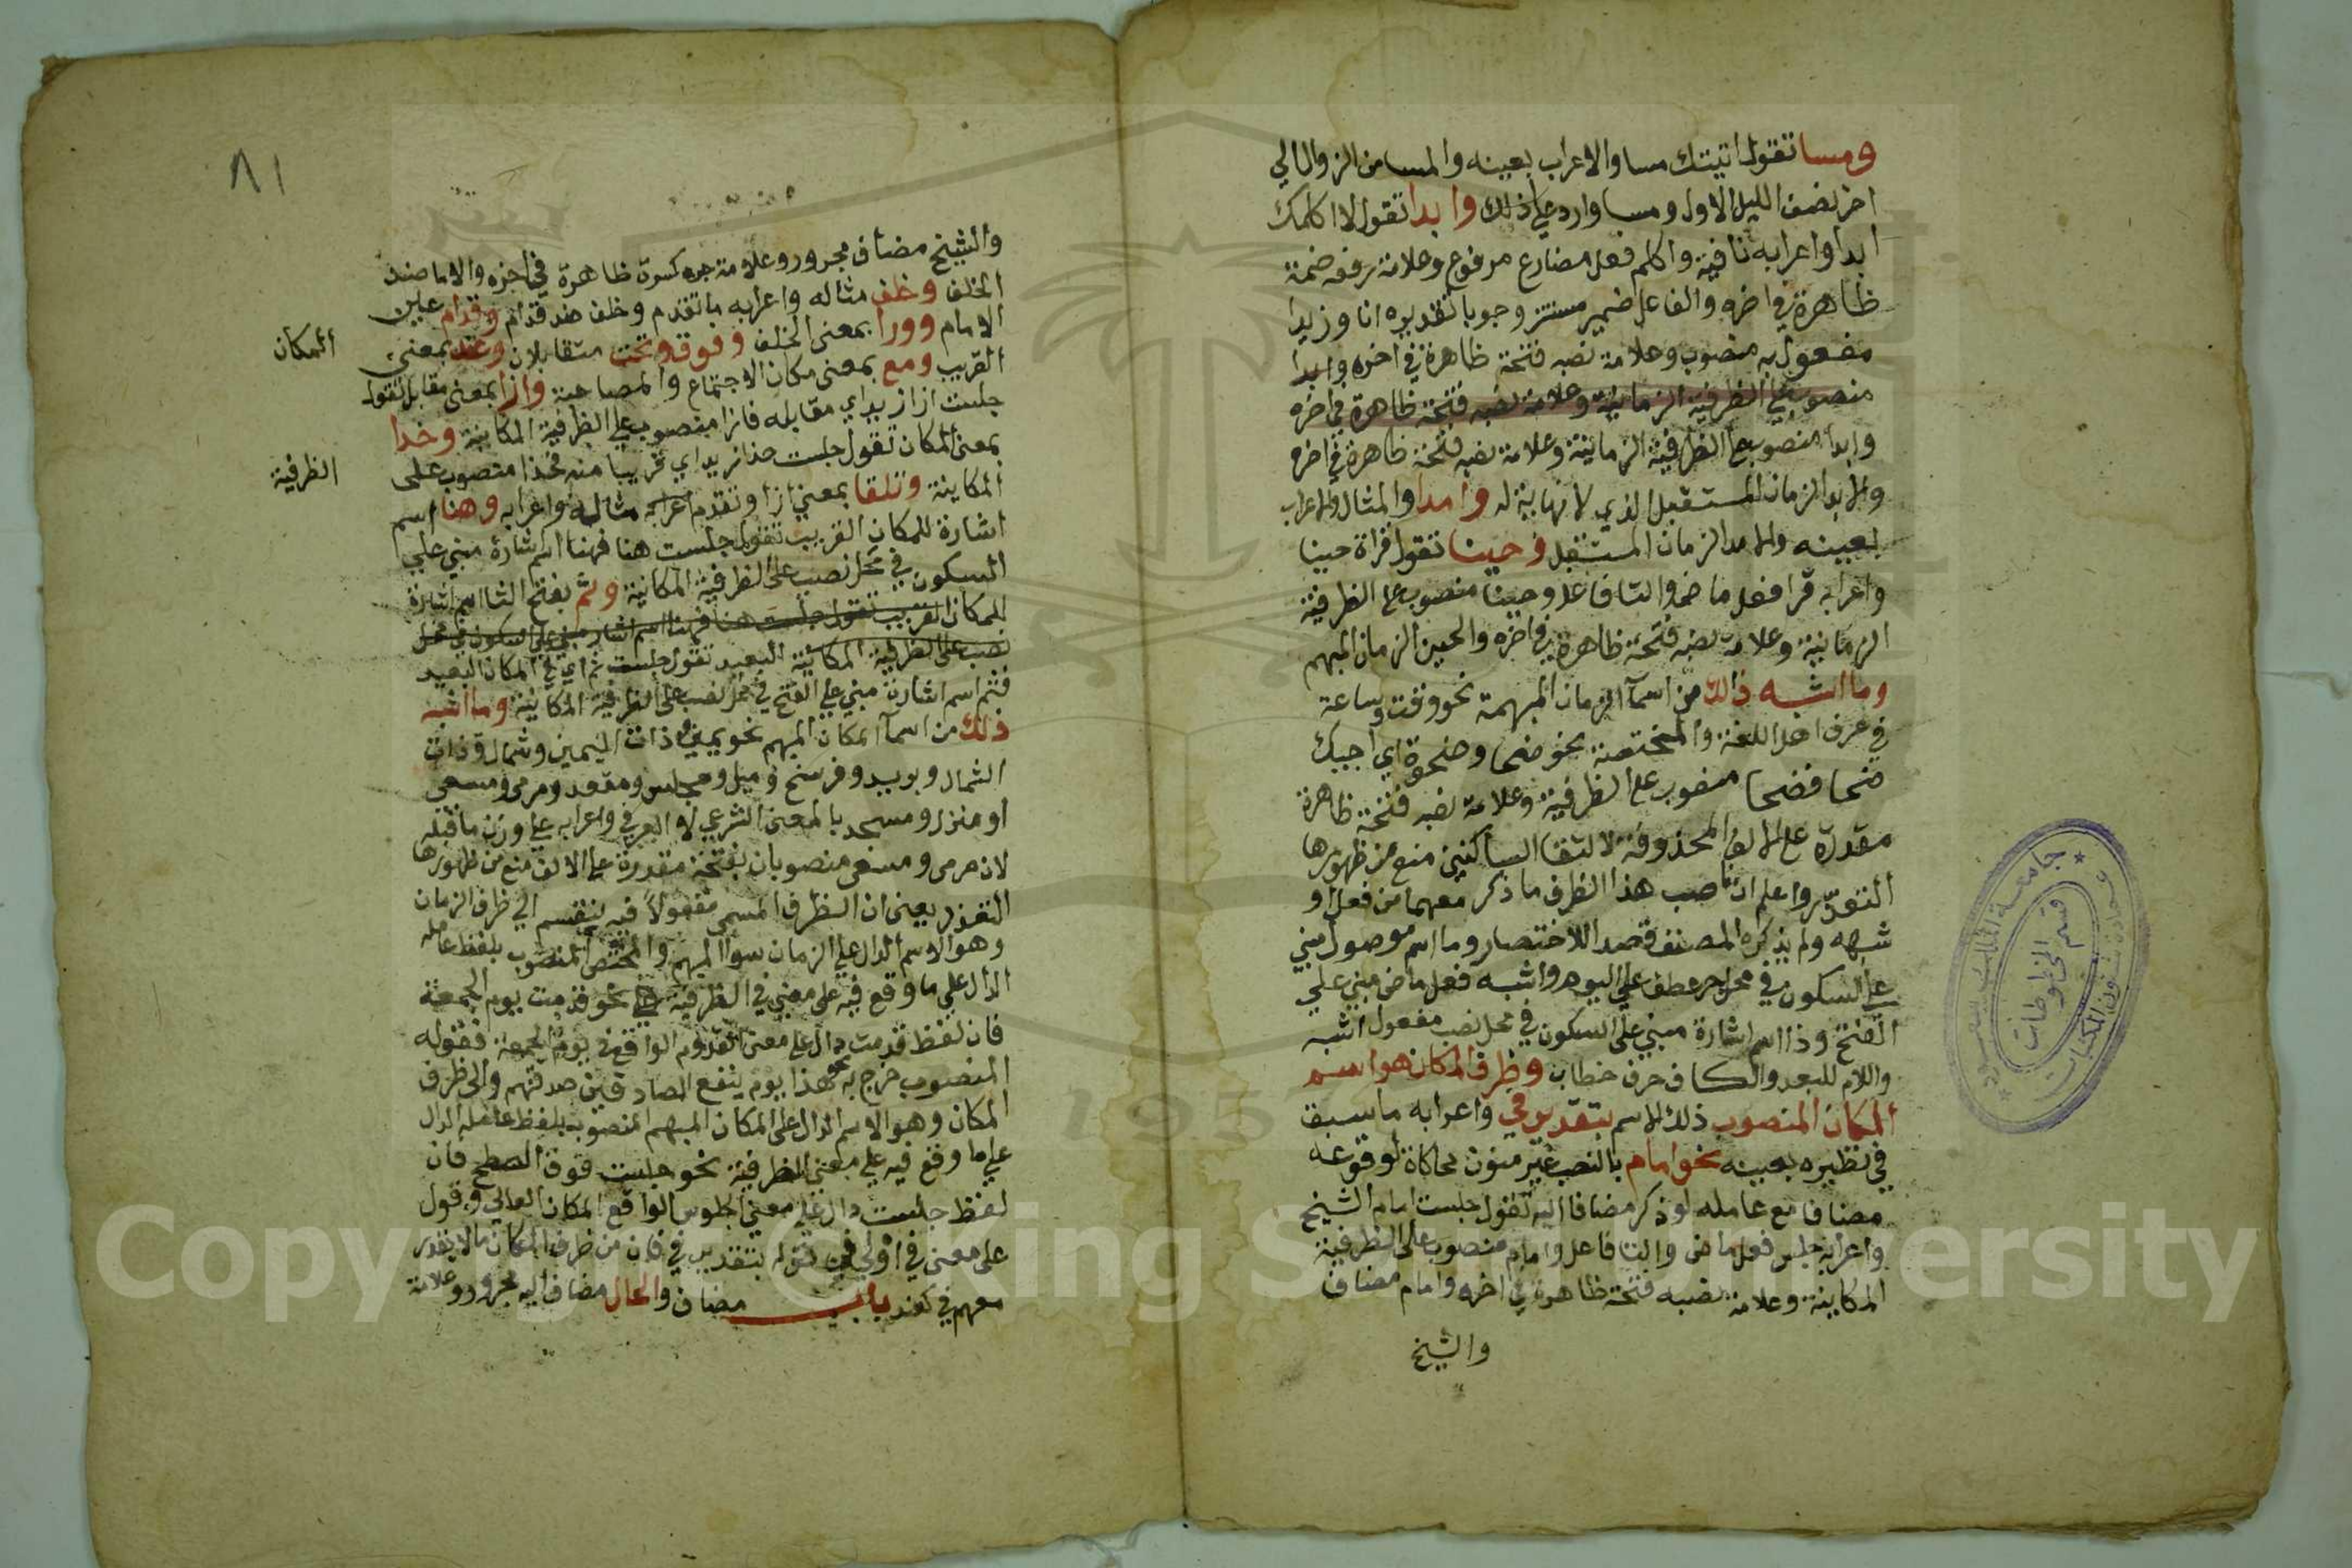 ومسا تقول اتيتك مسا والاعراب بعينه والمسا من الزوال الي
اخر نصف الليل الاول ومسا وارد علي ذلك وابدا تقول لا اكلمك
ابدا واعرابه نافية واكلم فعل مضارع مرفوع وعلامة رفعه ضمة
ظاهرة في اخره والفاعل ضمير مستتر وجوبا تقديره انا وزيدا
مفعول به منصوب وعلامة نصبه فتحة ظاهرة في اخره وابدا
منصوب علي الظرفية الزمانية وعلامة نصبه فتحة ظاهرة في اخره
وابدا منصوب علي الظرفية الزمانية وعلامة نصبه فتحة ظاهرة في اخره
والابد الزمان المستقبل الذي لا نهاية له وامدا والمثال والاعراب
بعينه والامد الزمان المستقبل وحينا تقول قراة حينا
واعرابه قرا فعل ماض والتا فاعل وحينا منصوب علي الظرفية
الزمانية وعلامة نصبه فتحة ظاهرة في اخره والحين الزمان المبهم
وما اشبه ذالك من اسمآ الزمان المبهمة نحو وقت وساعة
في عرف اهل اللغة والمختصة نحو ضحا وضحوة اي اجيك
ضحا فضحا منصوب علي الظرفية وعلامة نصبه فتحة ظاهرة
مقدرة علي الالف المحذوفة لالتقا الساكنين منع من ظهورها
التعذر واعلم ان ناصب هذا الظرف ما ذكر معهما من فعل او
شبهه ولم يذكره المصنف قصد اللاختصار وما اسم موصول مبني
علي السكون في محل جر عطف علي اليوم واشبه فعل ماض مبني علي
الفتح وذا اسم اشارة مبني علي السكون في محل نصب مفعول اشبه
واللام للبعد والكاف حرف خطاب وظرف المكان هو اسم
المكان المنصوب ذلك الاسم بتقدير في واعرابه ما سبق
في نظيره بعينه نحو امام بالنصب غير منون محاكاة لوقوعه
مضافا مع عامله لو ذكر مضافا اليه تقول جلست امام الشيخ
واعرابه جلس فعل ماض والتا فاعل وامام منصوب علي الظرفية
المكانية وعلامة نصبه فتحة ظاهرة في اخره وامام مضاف
والشيخ
جامعة الملك سعود
قسم المخطوطات
عمادة شؤون المكتبات
٨١
والشيخ مضاف مجرور وعلامة جره كسرة ظاهرة في اخره والامام ضد
الخلف وخلف مثاله واعرابه ما تقدم وخلف ضد قدام وقدام عين
الامام وورا بمعني الخلف وفوق وتحت متقابلان وعند بمعني
المكان
القريب ومع بمعني مكان الاجتماع والمصاحبة وازا بمعني مقابل تقول
جلست ازا زيد اي مقابله فازا منصوب علي الظرفية المكانية وحذا
بمعني المكان تقول جلست حذا زيد اي قريبا منه فحذا منصوب علي
الظرفية
المكانية وتلقا بمعني ازا وتقدم اعرابه مثاله واعرابه وهنا اسم
اشارة للمكان القريب تقول جلست هنا فهنا اسم شارة مبني علي
السكون في محل نصب علي الظرفية المكانية وثم بفتح الثا اسم اشارة
للمكان القريب تقول جلست هنا فهنا اسم اشار مبني علي سكون في محل
نصب علي الظرفية المكانية البعيد تقول جلست ثم اي في المكان البعيد
فثم اسم اشارة مبني علي الفتح في محل نصب علي الظرفية المكانية وما اشبه
ذلك من اسمآ المكان المبهم نحو يمين وذات اليمين وشمال وذات
الشمال وبريد وفرسخ وميل ومجلس ومقعد ومرمي ومسعي
او منزل ومسجد بالمعني الشرعي لا العرفي واعرابه علي وزن ما قبله
لان مرمي ومسعي منصوبان بفتحة مقدرة علي الالف منع من ظهورها
التعذر يعني ان الظرف المسمي مفعولاً فيه ينقسم الي ظرف الزمان
وهو الاسم الدال علي الزمان سوا المبهم والمختص المنصوب بلفظ عامله
الدال علي ما وقع فيه علي معني في الظرفية نحو قدمت يوم الجمعة
فان لفظ قدمت دال علي معني القدوم الواقع في يوم الجمعة فقوله
المنصوب خرج به نحو هذا يوم ينفع الصادقين صدقهم والي ظرف
المكان وهو الاسم الدال علي المكان المبهم المنصوب بلفظ عامله الدال
علي ما وقع فيه علي معني الظرفية نحو جلست فوق السطح فان
لفظ جلست دال علي معني الجلوس الواقع المكان العالي وقول
علي معني في اولي من قوله بتقدير في فان من ظرف المكان ما لا يقدر
معهم في كعند باب مضاف والحال مضاف اليه مجرور وعلامة
Copyright © King Saud University